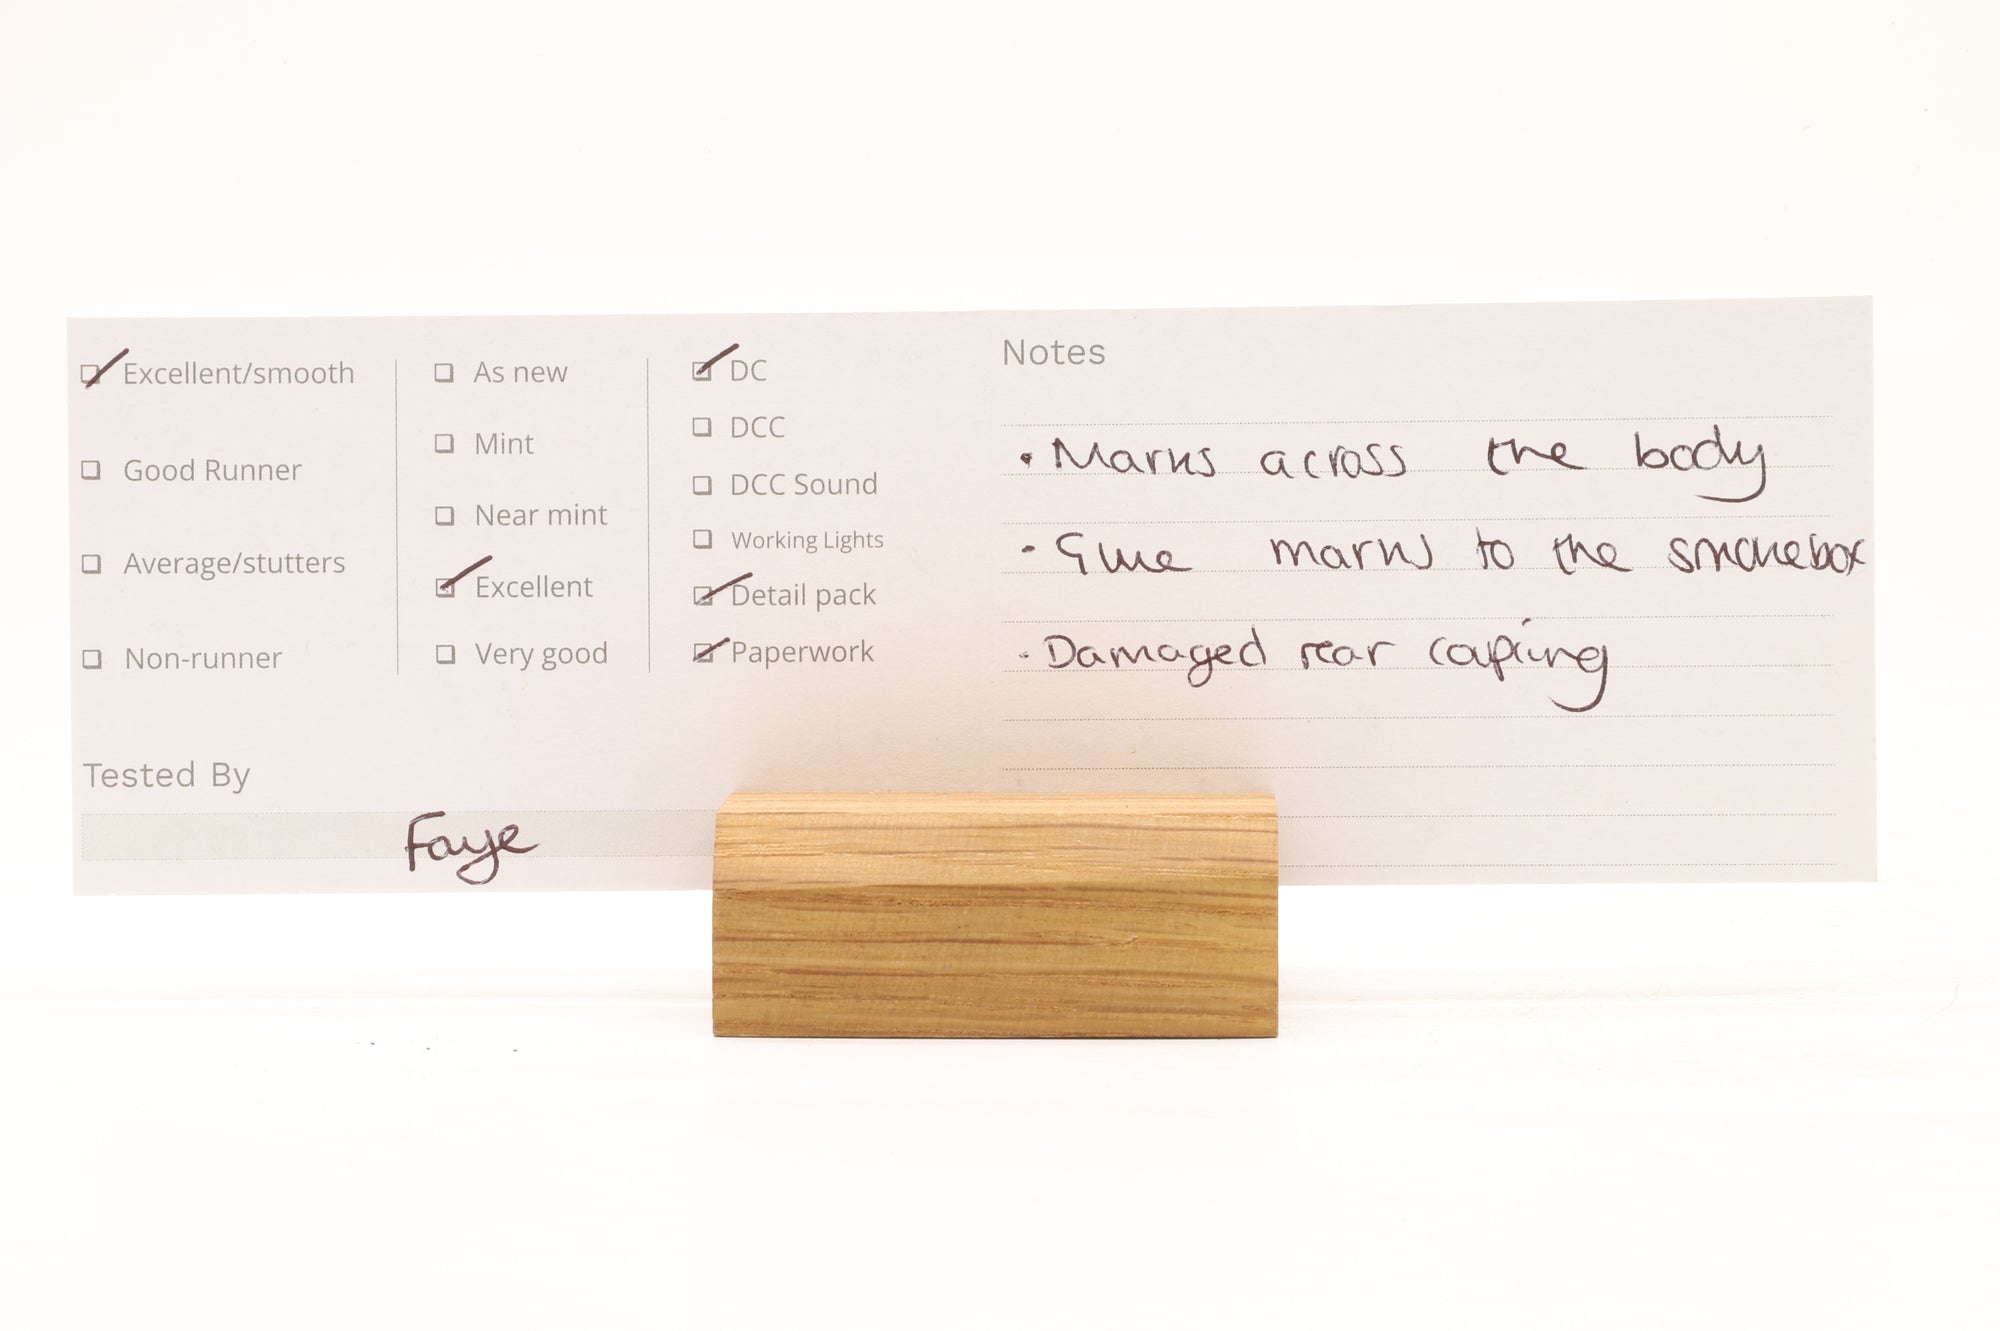 Excellent/smooth
Good Runner
Average/stutters
Non-runner
As new
Mint
Near mint
Excellent
Very good
DC
DCC
DCC Sound
Working Lights
Detail pack
Paperwork
Tested By
Faye
Notes
• Marks across the body
- Glue marks to the smokebox
- Damaged rear coupling